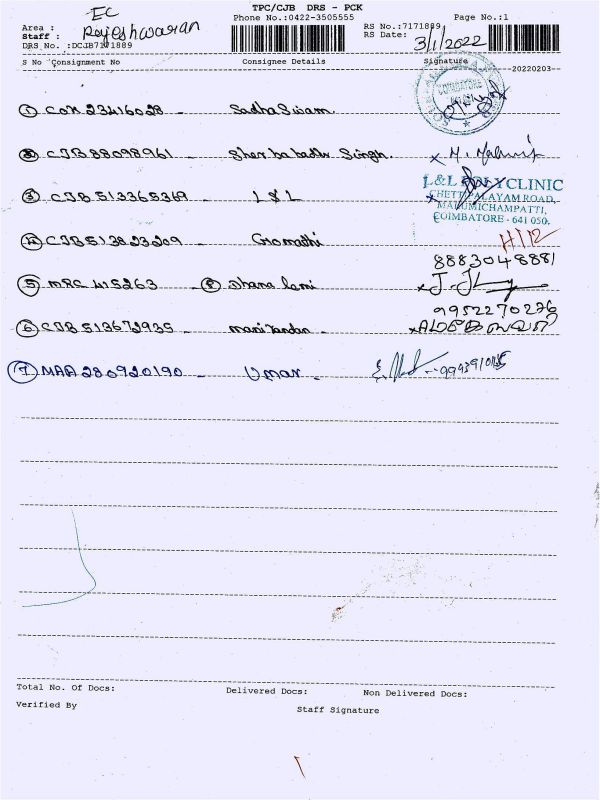 TPC/CJB DRS - PCK
EC
Phone No.:0422-3505555
Page No.:1
Area :
Staff : Rajeshwaran
RS No.:7171889
RS Date: 3/1/2022
DRS No. :DCJB7171889
S No Consignment No Consignee Details Signature
20220203
COIMBATORE
1 COK 23416028 - Sadha Sivam
2 CJB 88098961 - Sher bahadur Singh.
3 CJB 513365369 - L & L
L&L POLYCLINIC
CHETTIPALAYAM ROAD,
MALUMICHAMPATTI,
COIMBATORE - 641 050.
4 CJB 513823209 - Gomathi
H/12
8883048881
5 MRC 415263 -
9952270276
6 CJB 513672935 - manikandan
7 MAA 280920190 - Umar -
Total No. Of Docs: Delivered Docs: Non Delivered Docs:
Verified By
Staff Signature